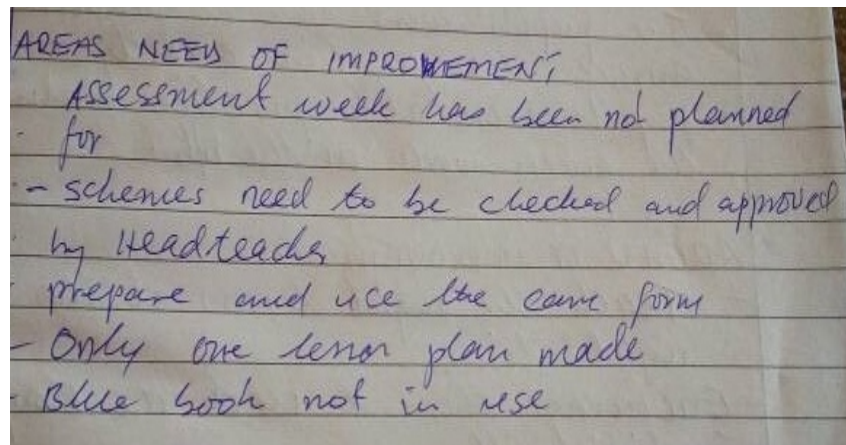 AREAS NEED OF IMPROVEMENT
Assessment week has been not planned
for
- schemes need to be checked and approved
by Headteacher
prepare and use the form
- Only one lesson plan made
- Blue book not in use